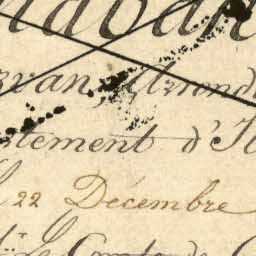 zvan, Arrond
tement d'Il
22 Décembre
Le Comte de